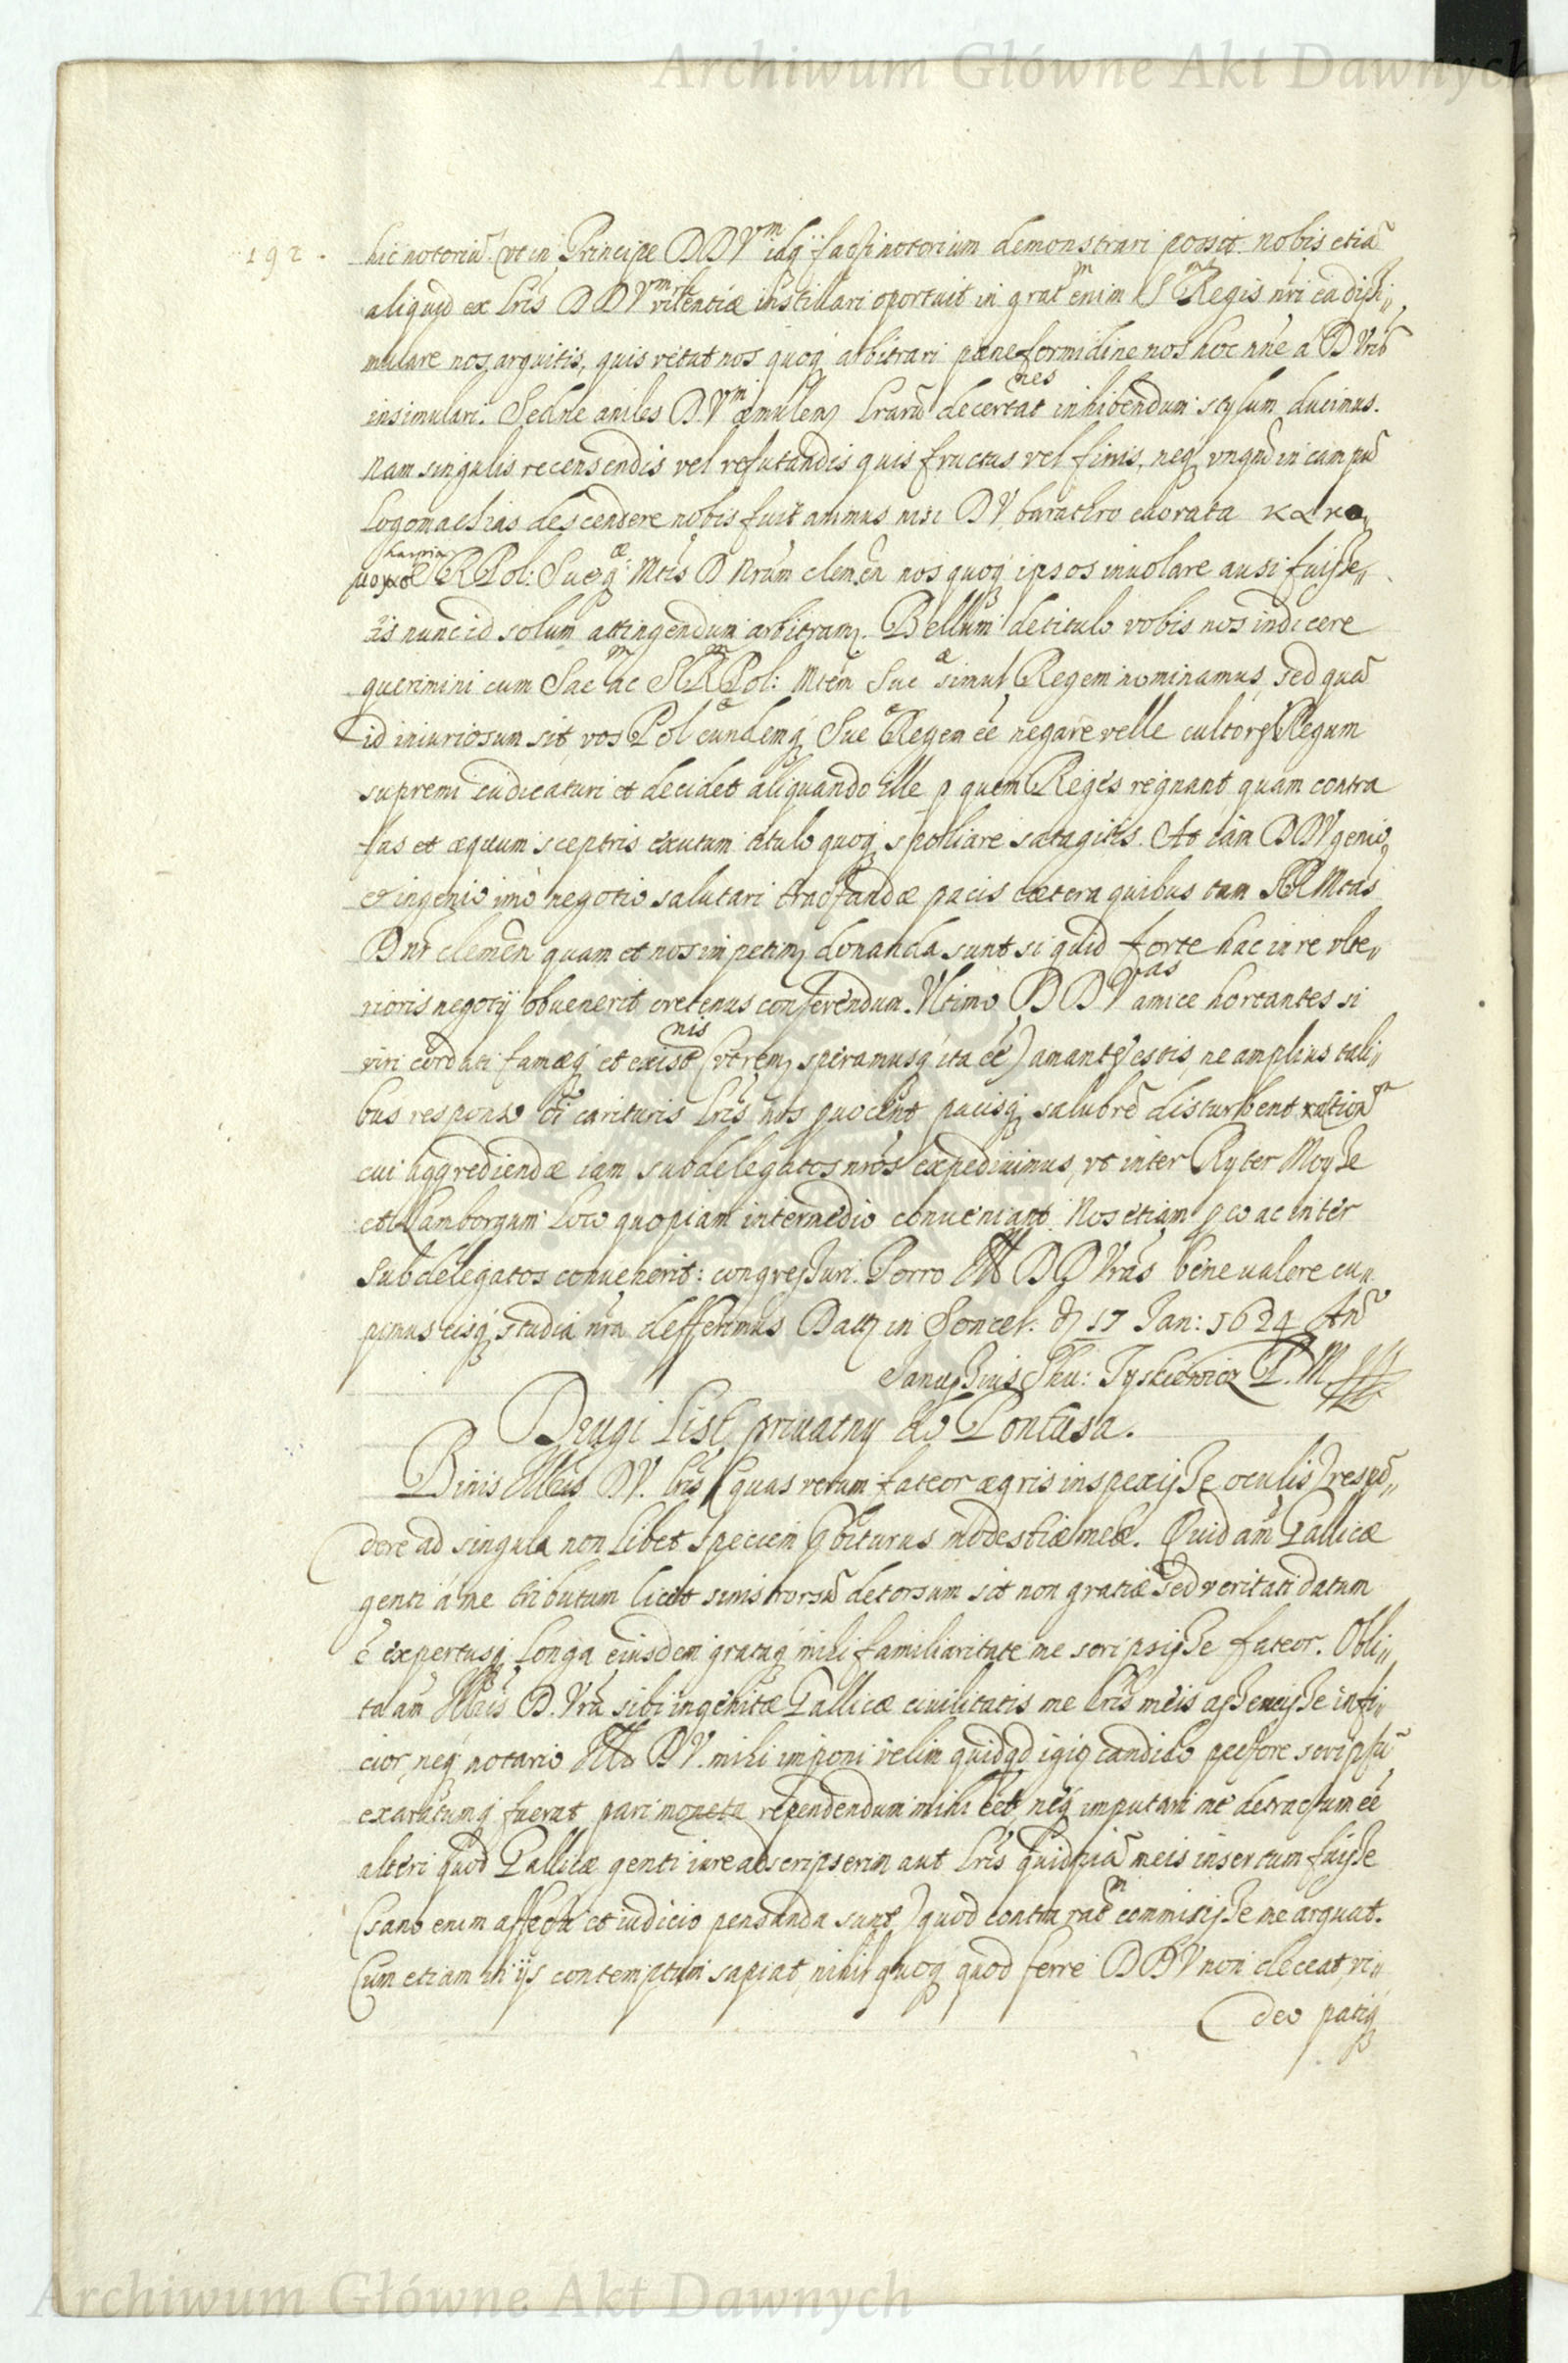 Archiwum Główne Akt Dawnych
192.
hic notoriũ. (vt in Principe DDVm idq; facti notorium demonstrari possit nobis etiã
aliquid ex Lris DDVm instillari oportuit in grat̃m enim S Rm Regis nri ea dissi„
mulare nos arguitis, quis vetat nos quoq; arbitrari pæne formidine nos hoc nñe a D Vris
insimulari. Sed ne aniles D.Vm æmulem; Lrarũ decertatnes inhibendum stylum ducimus.
Nam singulis recensendis vel refutandis quis fructus vel finis, neq; vnqm̃ in campũ
Logomachias descendere nobis fuit animus nisi DV. barathro euorata κακο„
RPol: Sueæq; Mtis D Nrum clemen̄ nos quoq; ipsos inuolare ausi fuisse„
tis nunc id solum attingendum arbitram;. Bellum de titulo vobis nos indicere
querimini cum Sacm ac SRm Pol: Mtem Sueæ simul Regem nominamus, sed quã
id iniuriosum sit, vos Polæ eundemq; Sueæ Regem ee negare velle cultores Regum
supremi iudicaturi et decidet aliquando ille p quem Reges regnant quam contra
fas et æquum sceptris exutum titulo quoq; spoliare satagitis. At iam DDV genio
et ingenio imo negotio salutari tractandæ pacis cætera quibus tam SRMtas
D nr clemen̄ quam et nos impetim; donanda sunt si quid forte hac in re vlte„
rioris negotij obuenerit oretenus conferendum. Vltimo DDVas amice hortantes si
viri cordati famæq; et existnis (vt rem; speramusq; ita ee) amantes estis, ne amplius tali„
bus responso carituris Lris nos quocient pacisq; salubrẽ disturbent ration̄m
cui aggrediendæ iam subdelegatos nros expediuimus, vt inter Ryter Moyse
et Lamborgum loco quopiam intermedio conueniant. Nos etiam p eo ac inter
subdelegatos conuenerit: congressuri. Porro Ill DDVras bene valere cu„
pimus eisq; studia nra defferimus Datt; in Soncel. d; 17 Jan: 1624 Anõ
Janussius Sku: Tyskiewicz P. M.
Drugi List priuatny do Pontusa.
Binis Illris DV. Lris (quas verum fateor ægris inspexisse oculis) respõ„
dere ad singula non libet speciem obiturus modestiæ meæ. Quid am̃ Gallicæ
genti a me tributum licet sinistrorsũ detorsum sit non gratiæ sed veritati datum
é expertusq; longa eiusdem grataq; mihi familiaritate me scripsisse fateor. Obli„
ta am̃ Illris D. Vra sibi ingenitæ Gallicæ ciuilitatis me Lris meis assensisse infi„
cior, neq; notario Ill DV. mihi imponi velim quidqd igio; candido pectore scriptũ
exaratumq; fuerat pari moneta rependendum mihi eet, neq; imputari nt detractum ee
alteri quod Gallicæ genti iure adscripserim aut Lris quidpiã meis insertum fuisse
(sano enim affectu et iudicio pensanda sunt) quod contra ratm commisisse me arguat.
Cum etiam in ijs contemptum sapiat, nihil quoq; quod ferre DDV non deceat, vi„
deo patiq;
Archiwum Główne Akt Dawnych